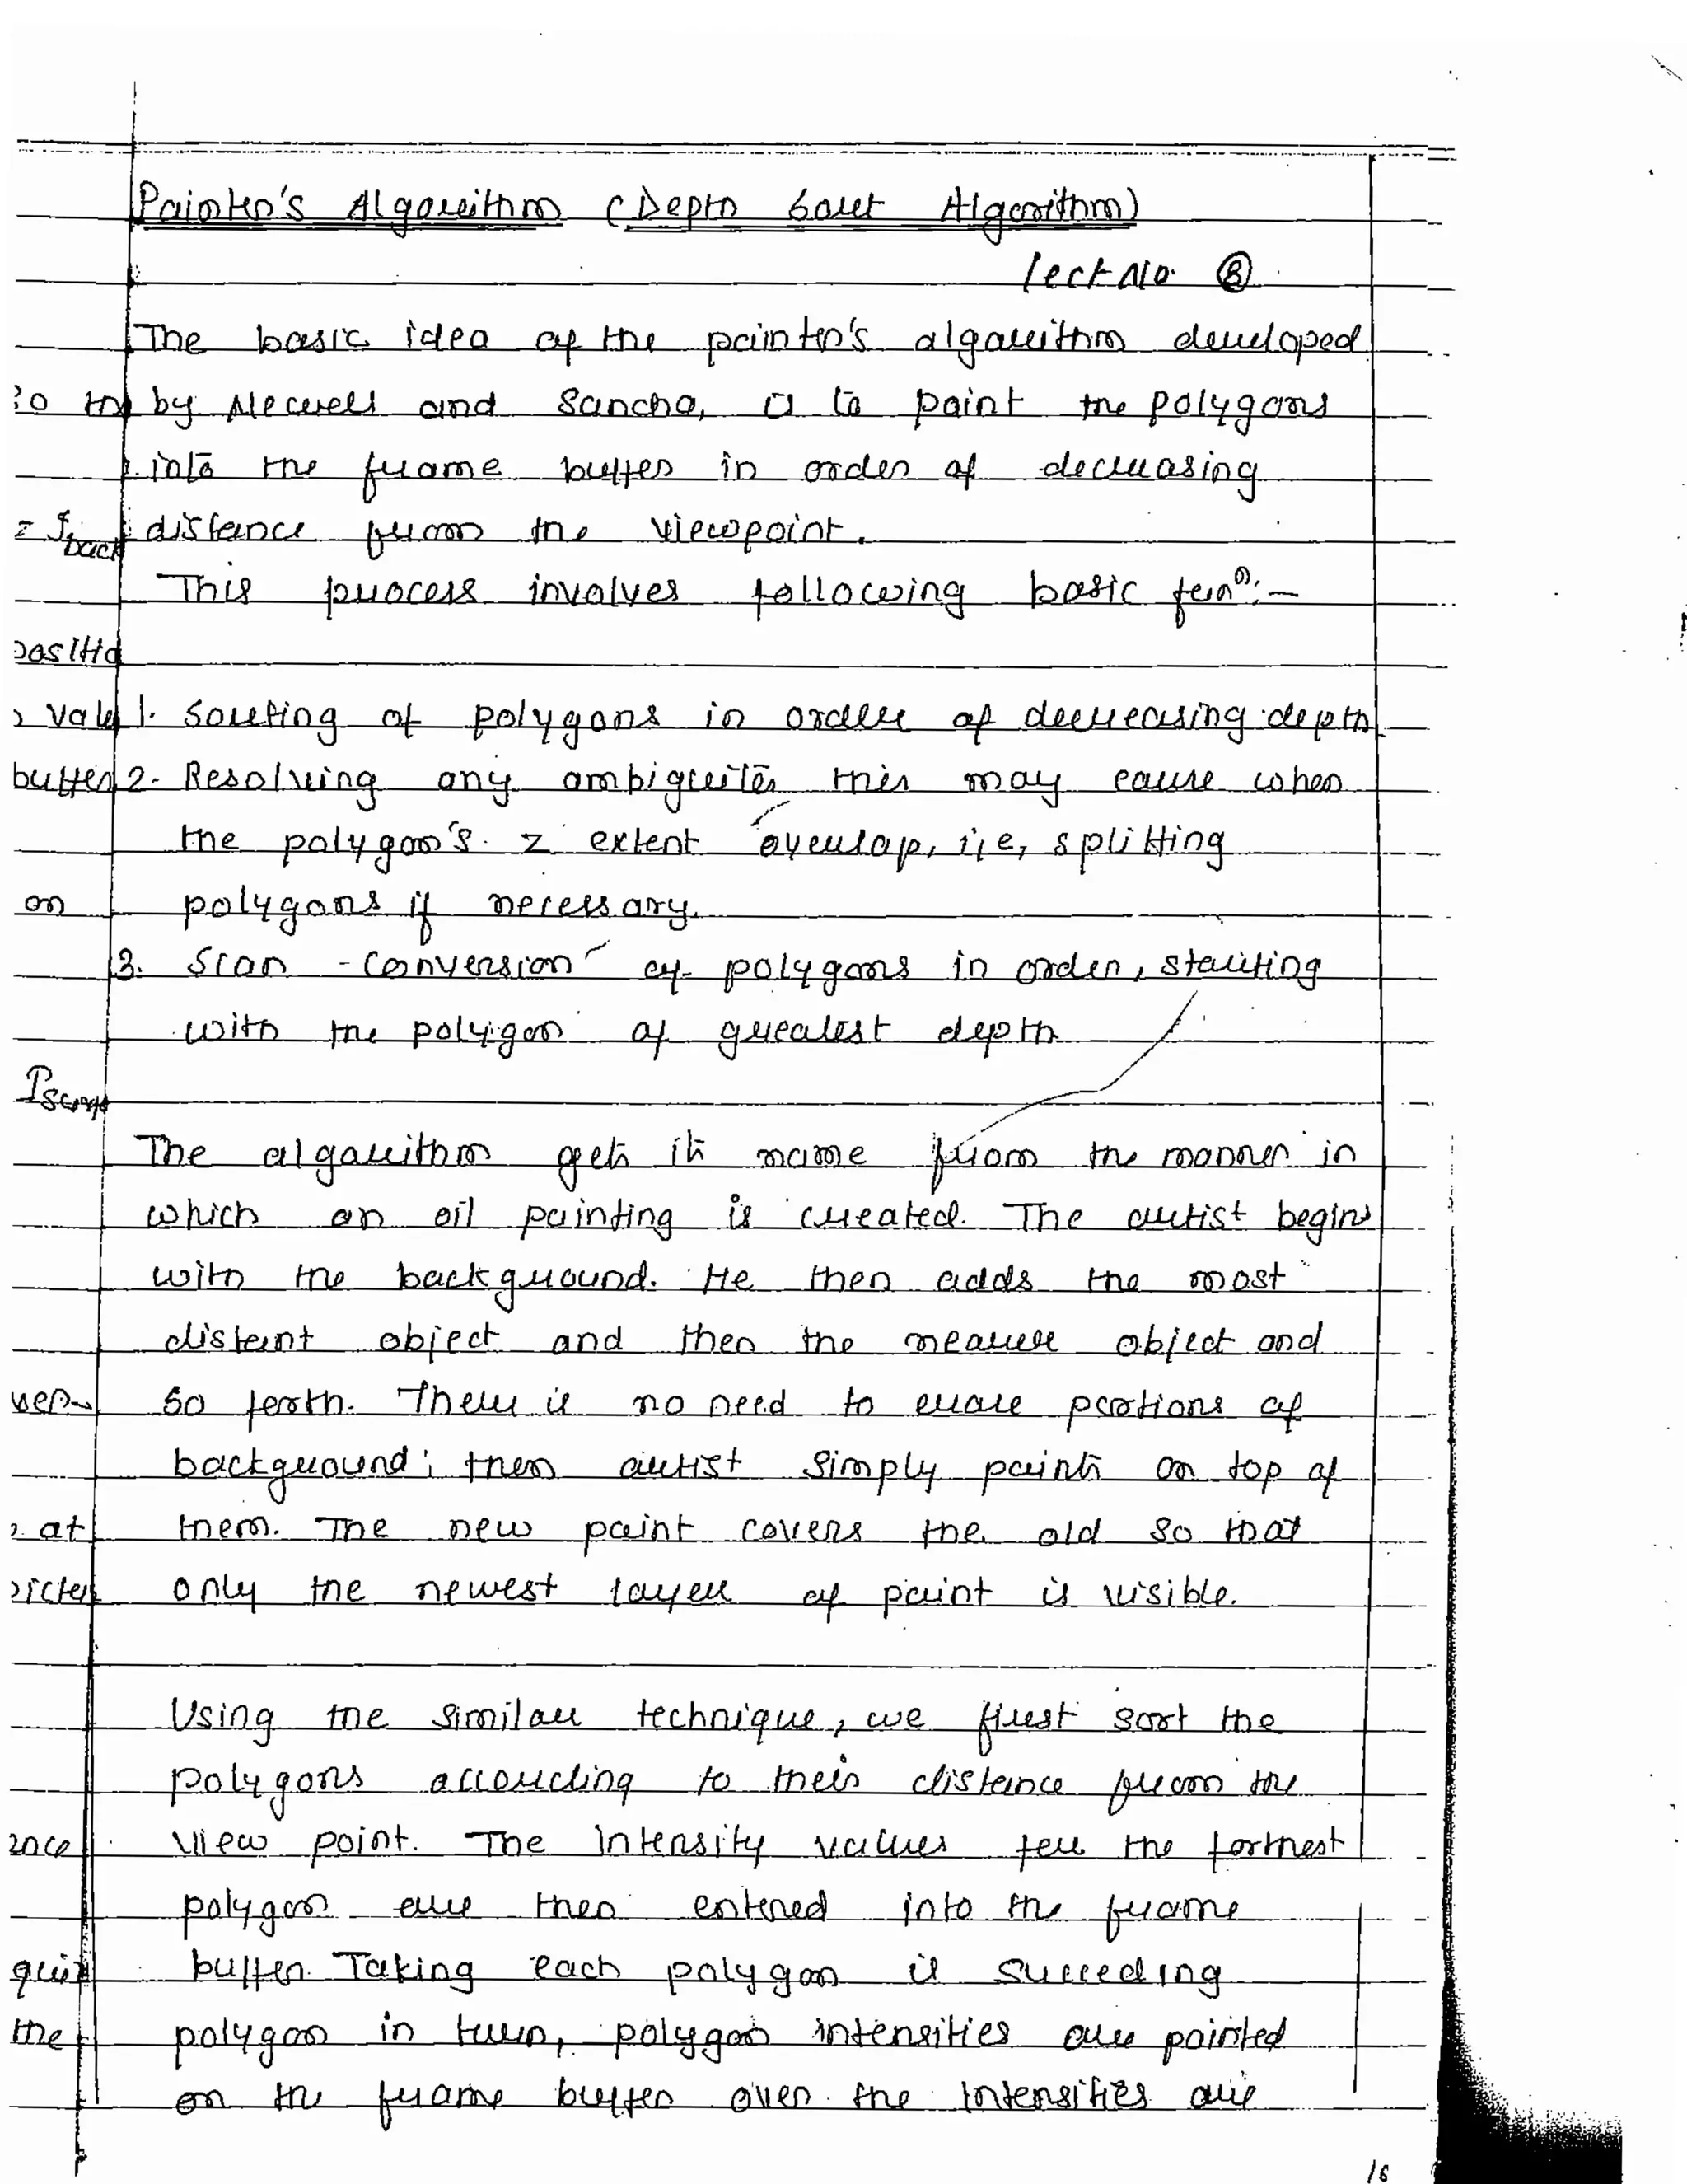 Painter's Algorithm (Depth Sort Algorithm)
Lect No. 8
The basic idea of the painter's algorithm developed
by Newell and Sancha, is to paint the polygons
into the frame buffer in order of decreasing
distance from the viewpoint.
This process involves following basic fun:-
1. Sorting of polygons in order of decreasing depth
2. Resolving any ambiguites this may cause when
the polygon's z extent overlap, i,e, splitting
polygons if necessary.
3. Scan - Conversion of polygons in order, starting
with the polygon of greatest depth
The algorithm gets its name from the manner in
which an oil painting is created. The artist begins
with the background. He then adds the most
distant object and then the nearer object and
so forth. There is no need to erase portions of
background; then artist simply paints on top of
them. The new paint covers the old so that
only the newest layer of paint is visible.
Using the similar technique, we first sort the
polygons according to their distance from the
view point. The Intensity values for the forthest
polygon are then entered into the frame
buffer. Taking each polygon is succeeding
polygon in turn, polygon intensities are painted
on the frame buffer over the intensities are
16
back
buffer
on
at
the